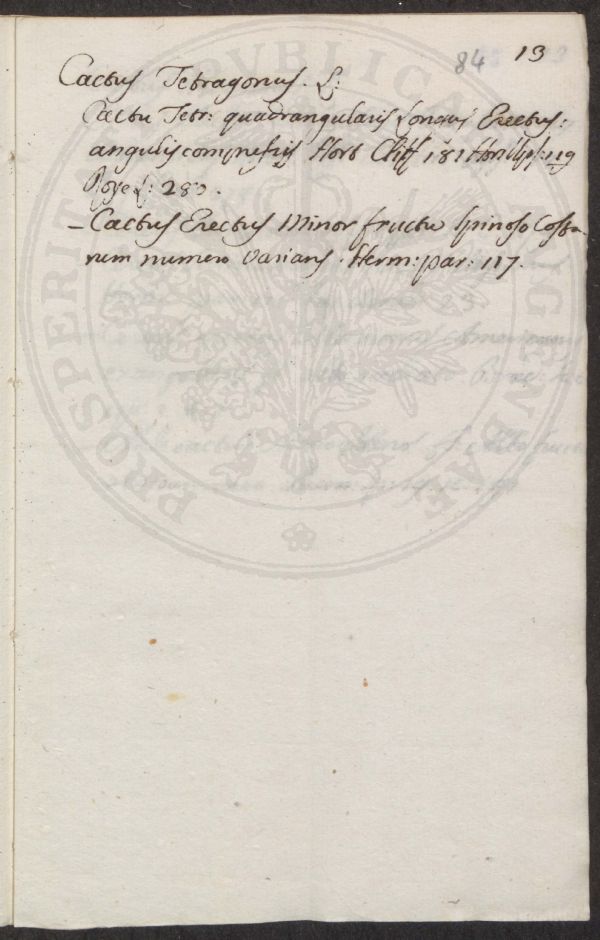 84 13
Cactus Tetragonus. L:
Cactu Tetr: quadrangularis Longus Erectus:
angulis compressis Hort Cliff 181 Hort Ups: 119
Roye L: 280.
- Cactus Erectus Minor fructu spinoso Costa
rum numero varians. Herm: par: 117.
PROSPERITATI PUBLICAE AUGENDAE